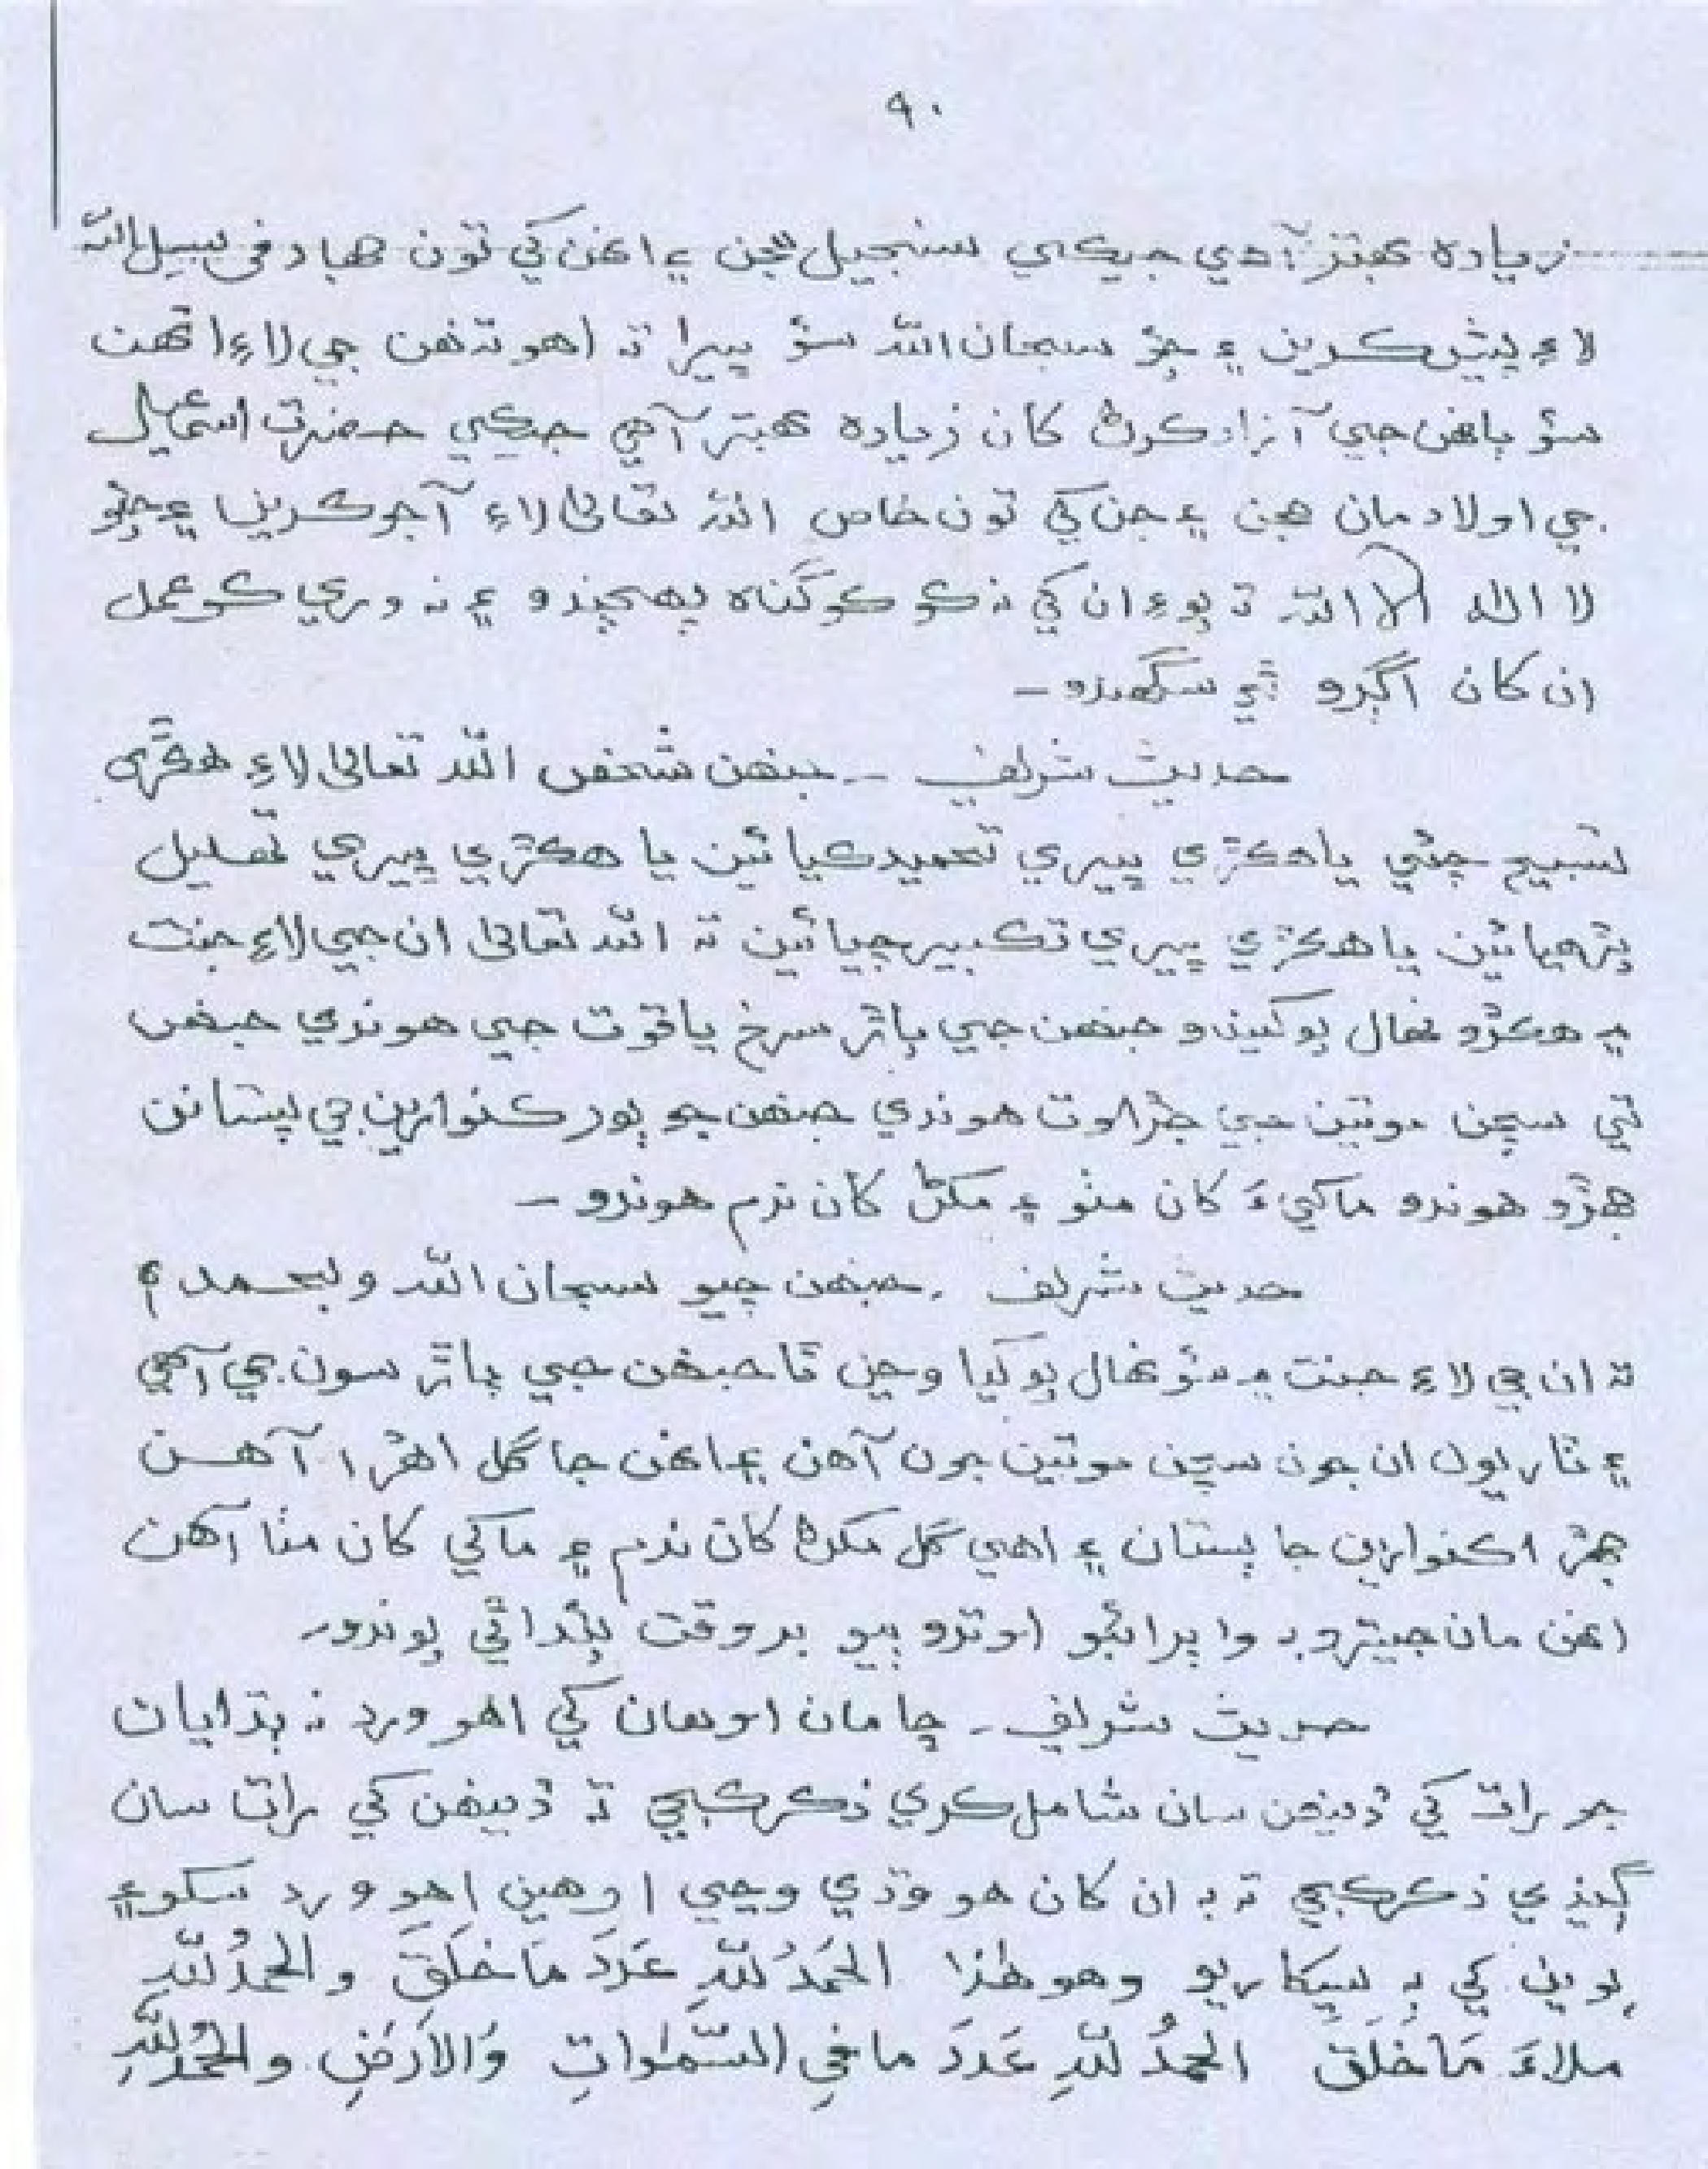 ٩٠
زياده بهتر آهي جيڪي سنجيل هجن ۽ اهن کي تون جهاد في سبيل الله
لاءِ پيش ڪرين ۽ چؤ سبحان الله سؤ ڀيرا ته اهو تنهن جي لاءِ انهن
سؤ ٻانهن جي آزاد ڪرڻ کان زياده بهتر آهي جيڪي حضرت اسماعيل
جي اولاد مان هجن ۽ جن کي تون خاص الله تعالیٰ لاءِ آجو ڪرين ۽ چئو
لا اله الا الله ته پوءِ ان کي نڪو ڪو گناه پهچندو ۽ نه وري ڪو عمل
ان کان اڳرو ٿي سگهندو –
حديث شريف – جنهن شخص الله تعالیٰ لاءِ هڪڙي
تسبيح چئي يا هڪڙي ڀيري تحميد ڪيائين يا هڪڙي ڀيري تهليل
پڙهيائين يا هڪڙي ڀيري تڪبير چيائين ته الله تعالیٰ ان جي لاءِ جنت
۾ هڪڙو نخال پوکيندو جنهن جي پاڙ سرخ ياقوت جي هوندي جنهن
تي سچن موتين جي جڙاوت هوندي جنهن جو ٻور ڪنوارين جي پستانن
جهڙو هوندو ماکيءَ کان مٺو ۽ مکڻ کان نرم هوندو –
حديث شريف . جنهن چيو سبحان الله وبحمده
ته ان جي لاءِ جنت ۾ سؤ نخال پوکيا وڃن ٿا جنهن جي پاڙ سون جي آهي
۽ ٽاريون ان جون سچن موتين جون آهن ۽ اهن جا گل اهڙا آهن
جهڙا ڪنوارين جا پستان ۽ اهي گل مکڻ کان نرم ۽ ماکي کان مٺا آهن
اهن مان جيترو به واپرائبو اوترو ٻيو بروقت پيدا ٿي پوندو.
حديث شريف – ڇا مان اوهان کي اهو ورد نه ٻڌايان
جو رات کي ڏينهن سان شامل ڪري ذڪر ڪجي ته ڏينهن کي رات سان
ڳنڍي ذڪر ڪجي ته به ان کان هو وڌي وڃي اوهين اهو ورد سکو ۽
ٻوين کي به سيکاريو وهو هٰذا الحَمدُ لِلّٰهِ عَدَدَ مَا خَلَقَ والحمدُ لِلّٰهِ
ملاءَ مَا خَلَقَ الحمدُ لِلّٰهِ عَدَدَ ما فِي السَّمٰواتِ وَالاَرضِ والحمدُ لِلّٰهِ